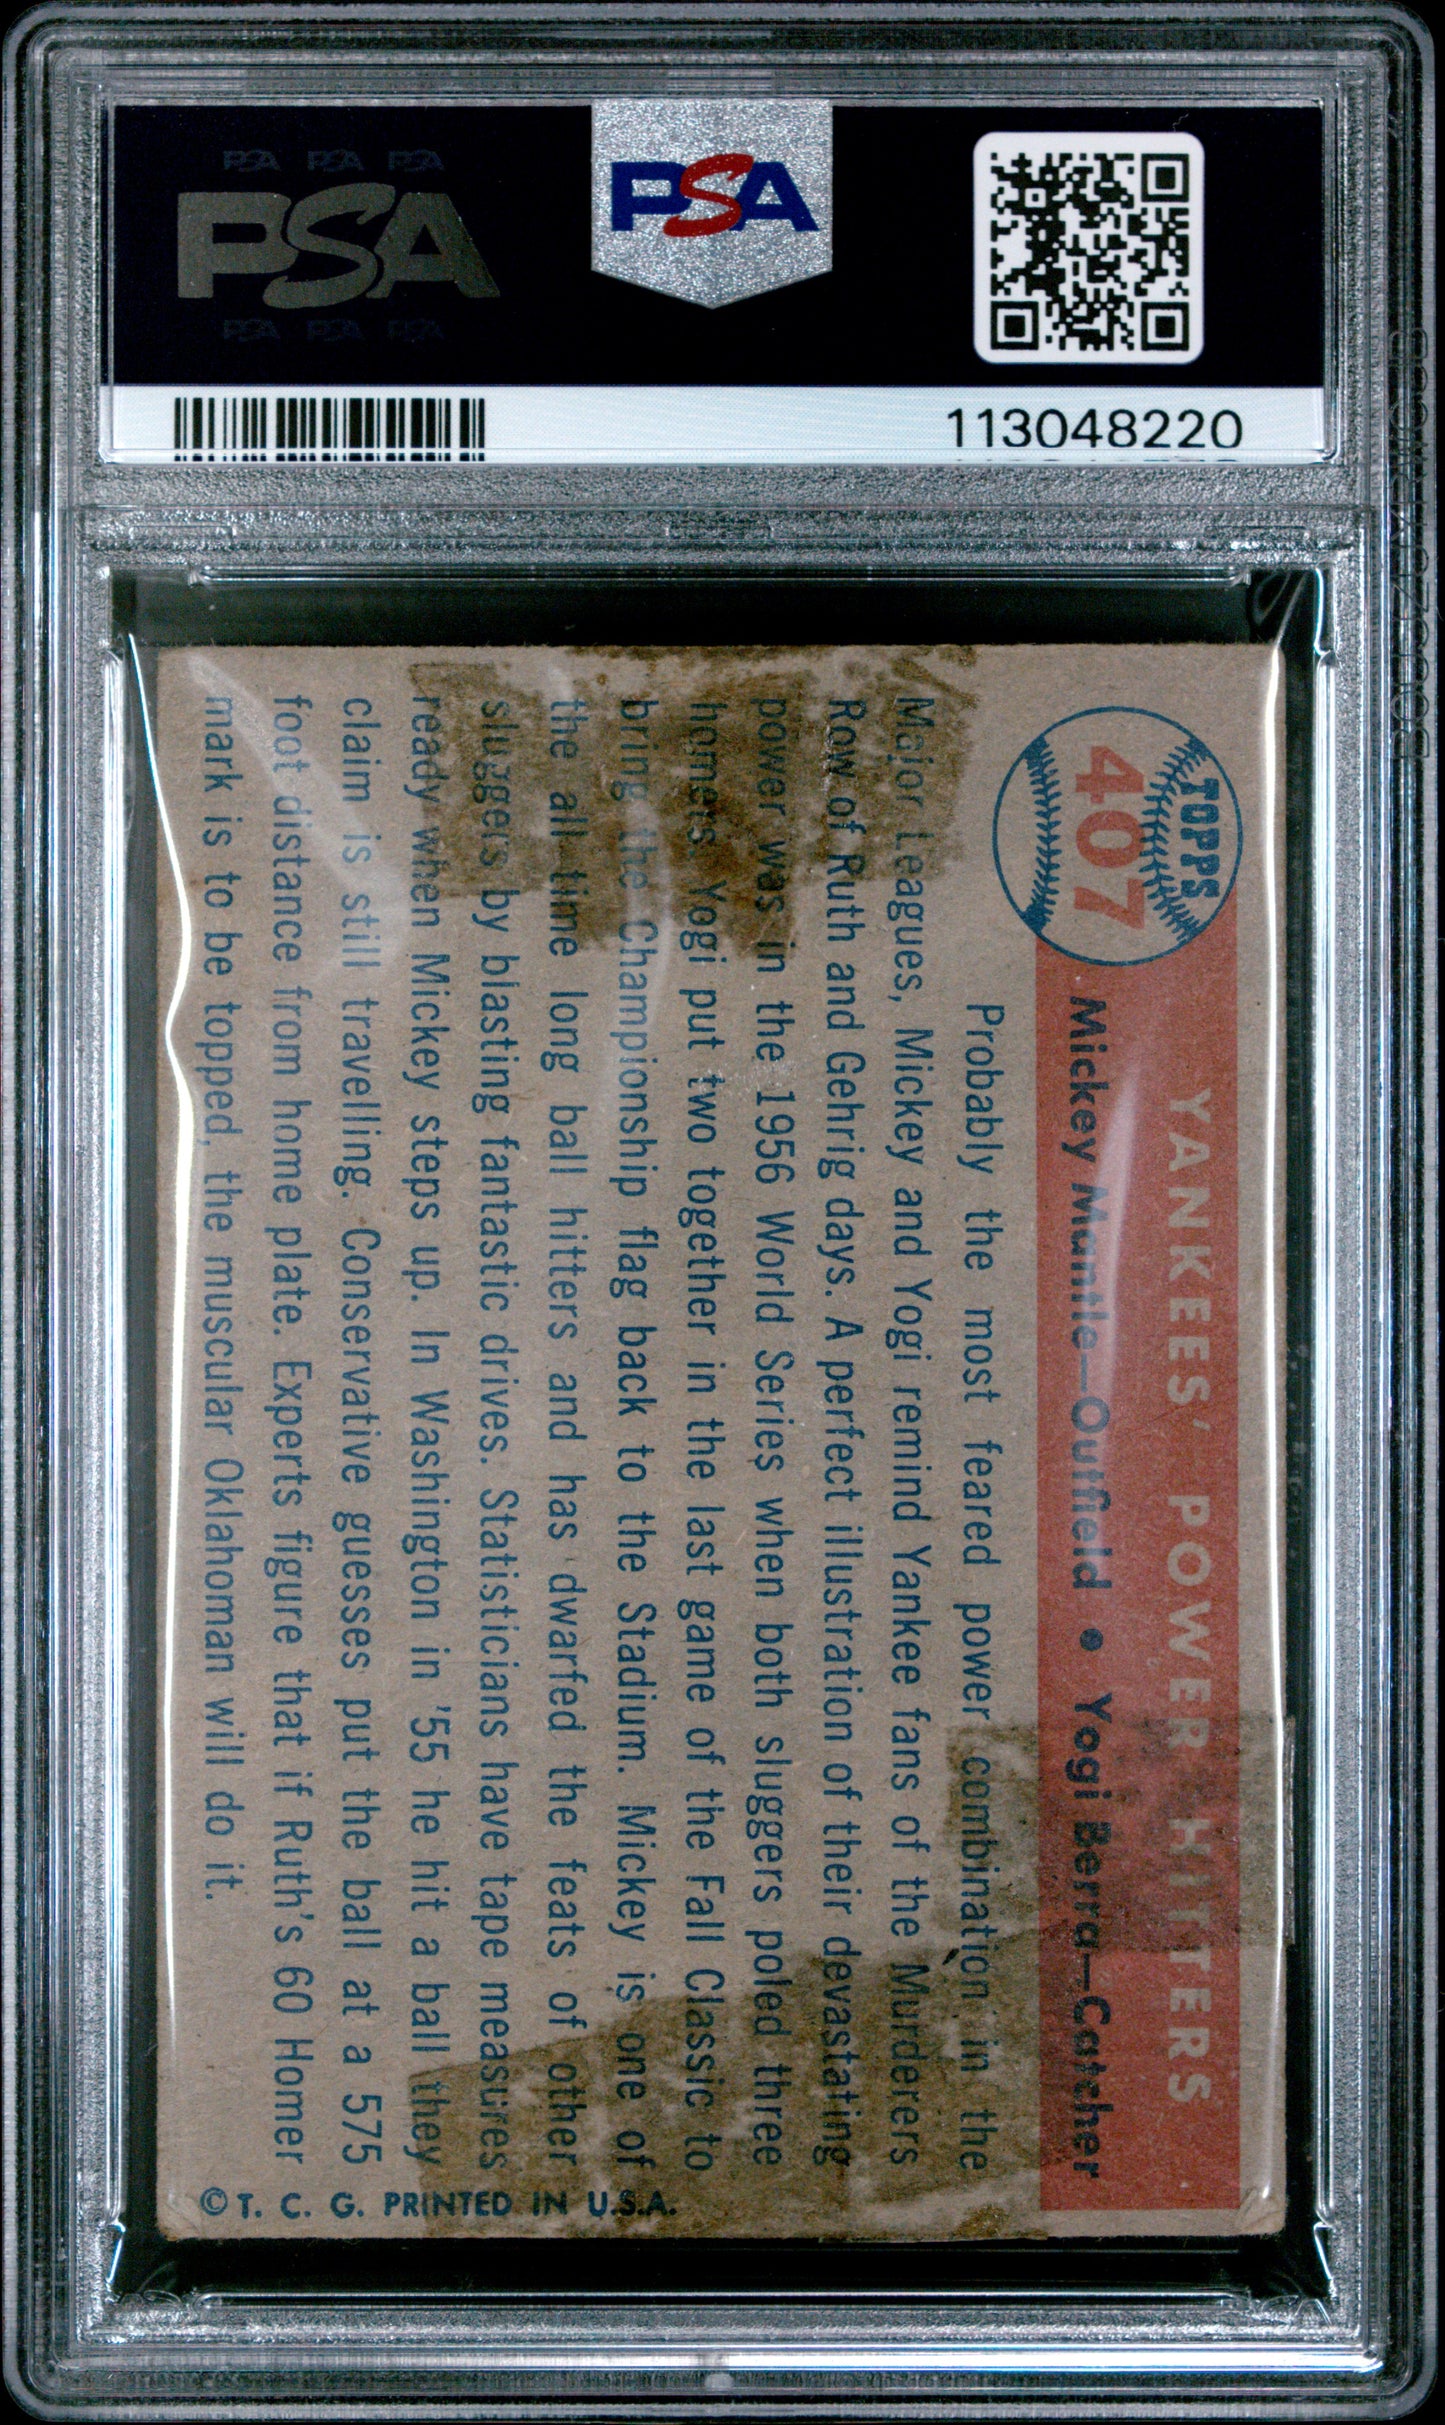 PSA PSA PSA
PSA
PSA PSA PSA
PSA
113048220
TOPPS
407
YANKEES' POWER HITTERS
Mickey Mantle—Outfield • Yogi Berra—Catcher
Probably the most feared power combination in the
Major Leagues, Mickey and Yogi remind Yankee fans of the Murderers
Row of Ruth and Gehrig days. A perfect illustration of their devastating
power was in the 1956 World Series when both sluggers poled three
homers. Yogi put two together in the last game of the Fall Classic to
bring the Championship flag back to the Stadium. Mickey is one of
the all-time long ball hitters and has dwarfed the feats of other
sluggers by blasting fantastic drives. Statisticians have tape measures
ready when Mickey steps up. In Washington in '55 he hit a ball they
claim is still travelling. Conservative guesses put the ball at a 575
foot distance from home plate. Experts figure that if Ruth's 60 Homer
mark is to be topped, the muscular Oklahoman will do it.
© T. C. G. PRINTED IN U.S.A.